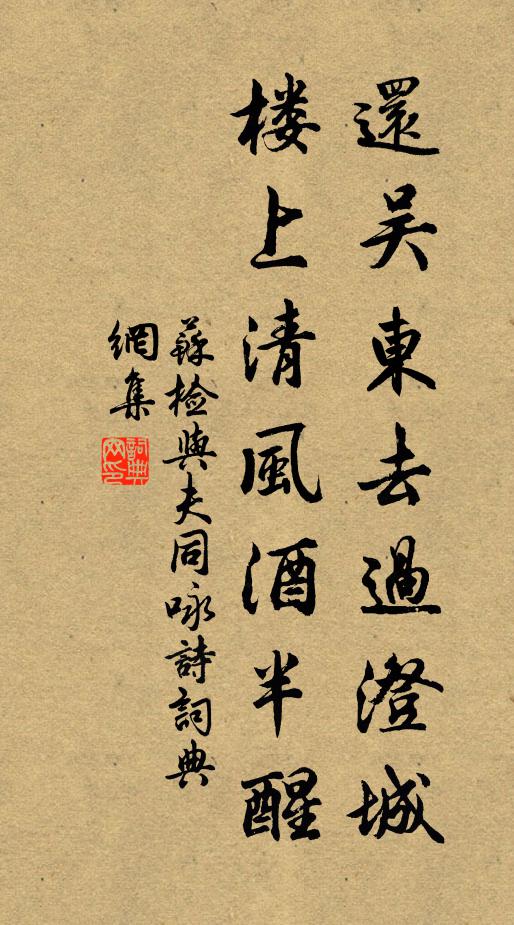 還吴東去過澄城
楼上清風酒半醒
蘇检與夫同咏詩詞典
網集
詞典
网印